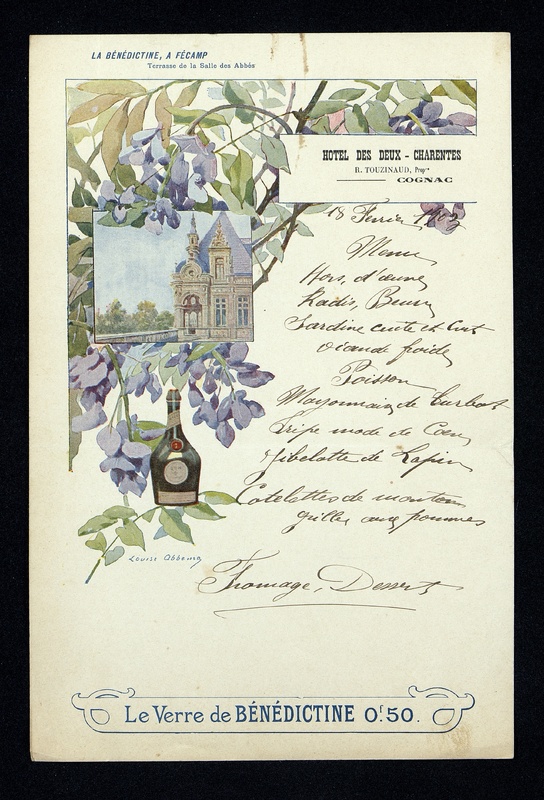 LA BÉNÉDICTINE, A FÉCAMP
Terrasse de la Salle des Abbés
HOTEL DES DEUX - CHARENTES
R. TOUZINAUD, Propre
COGNAC
18 Fevrier
Menu
Hors, d'œuvre
Radis, Beurre
Sardine cuite et
viande froide
Poisson
Mayonnaise de Turbot
Tripe mode de Caen
Gibelotte de Lapin
Cotelettes de mouton
grillee aux pommes
Fromage, Dessert
Louise Abbema
Le Verre de BÉNÉDICTINE 0f.50.